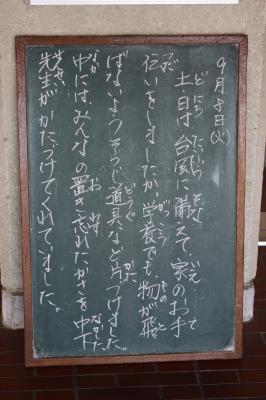 9月8日(火)
土、日は台風に備えて家のお手
伝いをしましたか。学校でも、物が飛
ばないようそうじ道具など片づけました。
中には、みんなの置き忘れたかさを中下
先生がかたづけてくれていました。